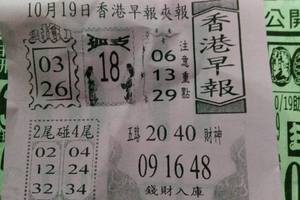 10月19日香港早報夾報
香港早報
03
26
18
注意重點
06
13
29
2尾碰4尾
02 04
12 24
32 34
20 40 財神
09 16 48
錢財入庫
公開